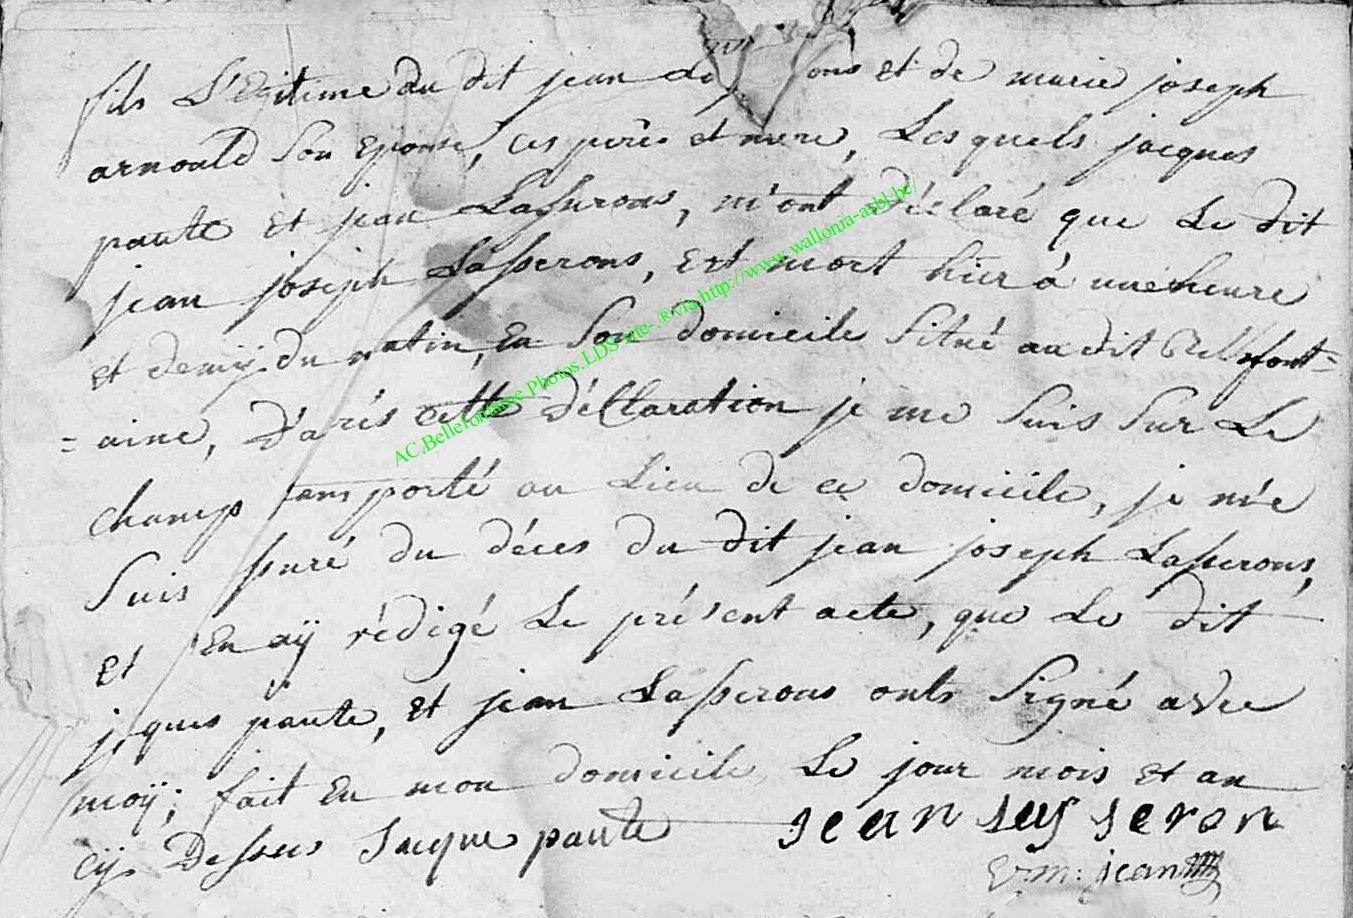 fils L'Egitime du dit jean et de marie joseph
arnould son Epouse, ces pere et mere, Les quels jacques
paute Et jean Lasserons, m'ont déclaré que Le dit
jean joseph Lasserons, Est mort hier à une heure
et demij du matin, En son domicile situé au dit Bellefont=
=aine, D'après cette déClaration je me suis sur Le
champ transporté au Lieu de ce domicile, je m'e
suis assuré du déces du dit jean joseph Lasserons,
Et En aÿ rédigé Le présent acte, que Le dit
jacques paute, Et jean Lasserons onts signé avec
moÿ; fait En mon domicile Le jour mois Et an
cÿ Dessus Jacque paute jean lasseron
jean
AC.Bellefontaine.Photos.LDS site-.®via.http://www.wallonia-asbl.be/